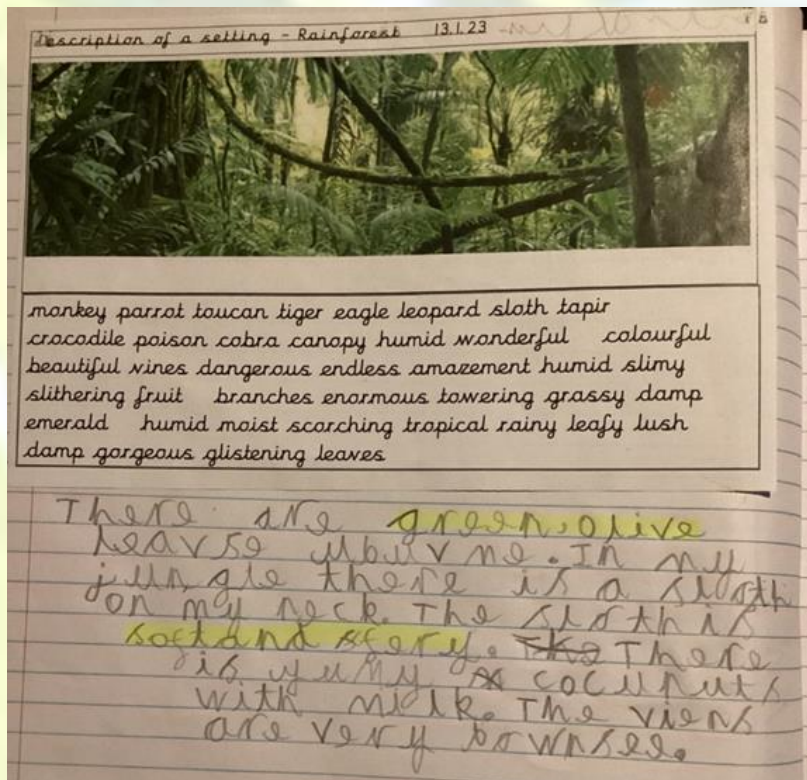 Description of a setting - Rainforest 13.1.23
monkey parrot toucan tiger eagle leopard sloth tapir
crocodile poison cobra canopy humid wonderful colourful
beautiful vines dangerous endless amazement humid slimy
slithering fruit branches enormous towering grassy damp
emerald humid moist scorching tropical rainy leafy lush
damp gorgeous glistening leaves
There are green, olive
leavse ubuv me. In my
jungle there is a sloth
on my neck. The sloth is
soft and There
is yumy cocunuts
with milk. The viens
are very